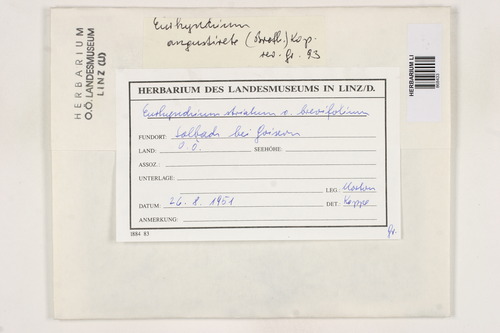 Eurhynchium
angustirete (Broth.) Kop.
rev. Gr. 93
HERBARIUM
O.Ö. LANDESMUSEUM
LINZ (LI)
HERBARIUM LI
HERBARIUM DES LANDESMUSEUMS IN LINZ/D.
Eurhynchium striatum v. brevifolium
FUNDORT: bei Goisern
LAND: O.Ö. SEEHÖHE:
ASSOZ.:
UNTERLAGE:
LEG:
DATUM: 26. 8. 1951 DET: Koppe
ANMERKUNG:
JR84 83
Gr.